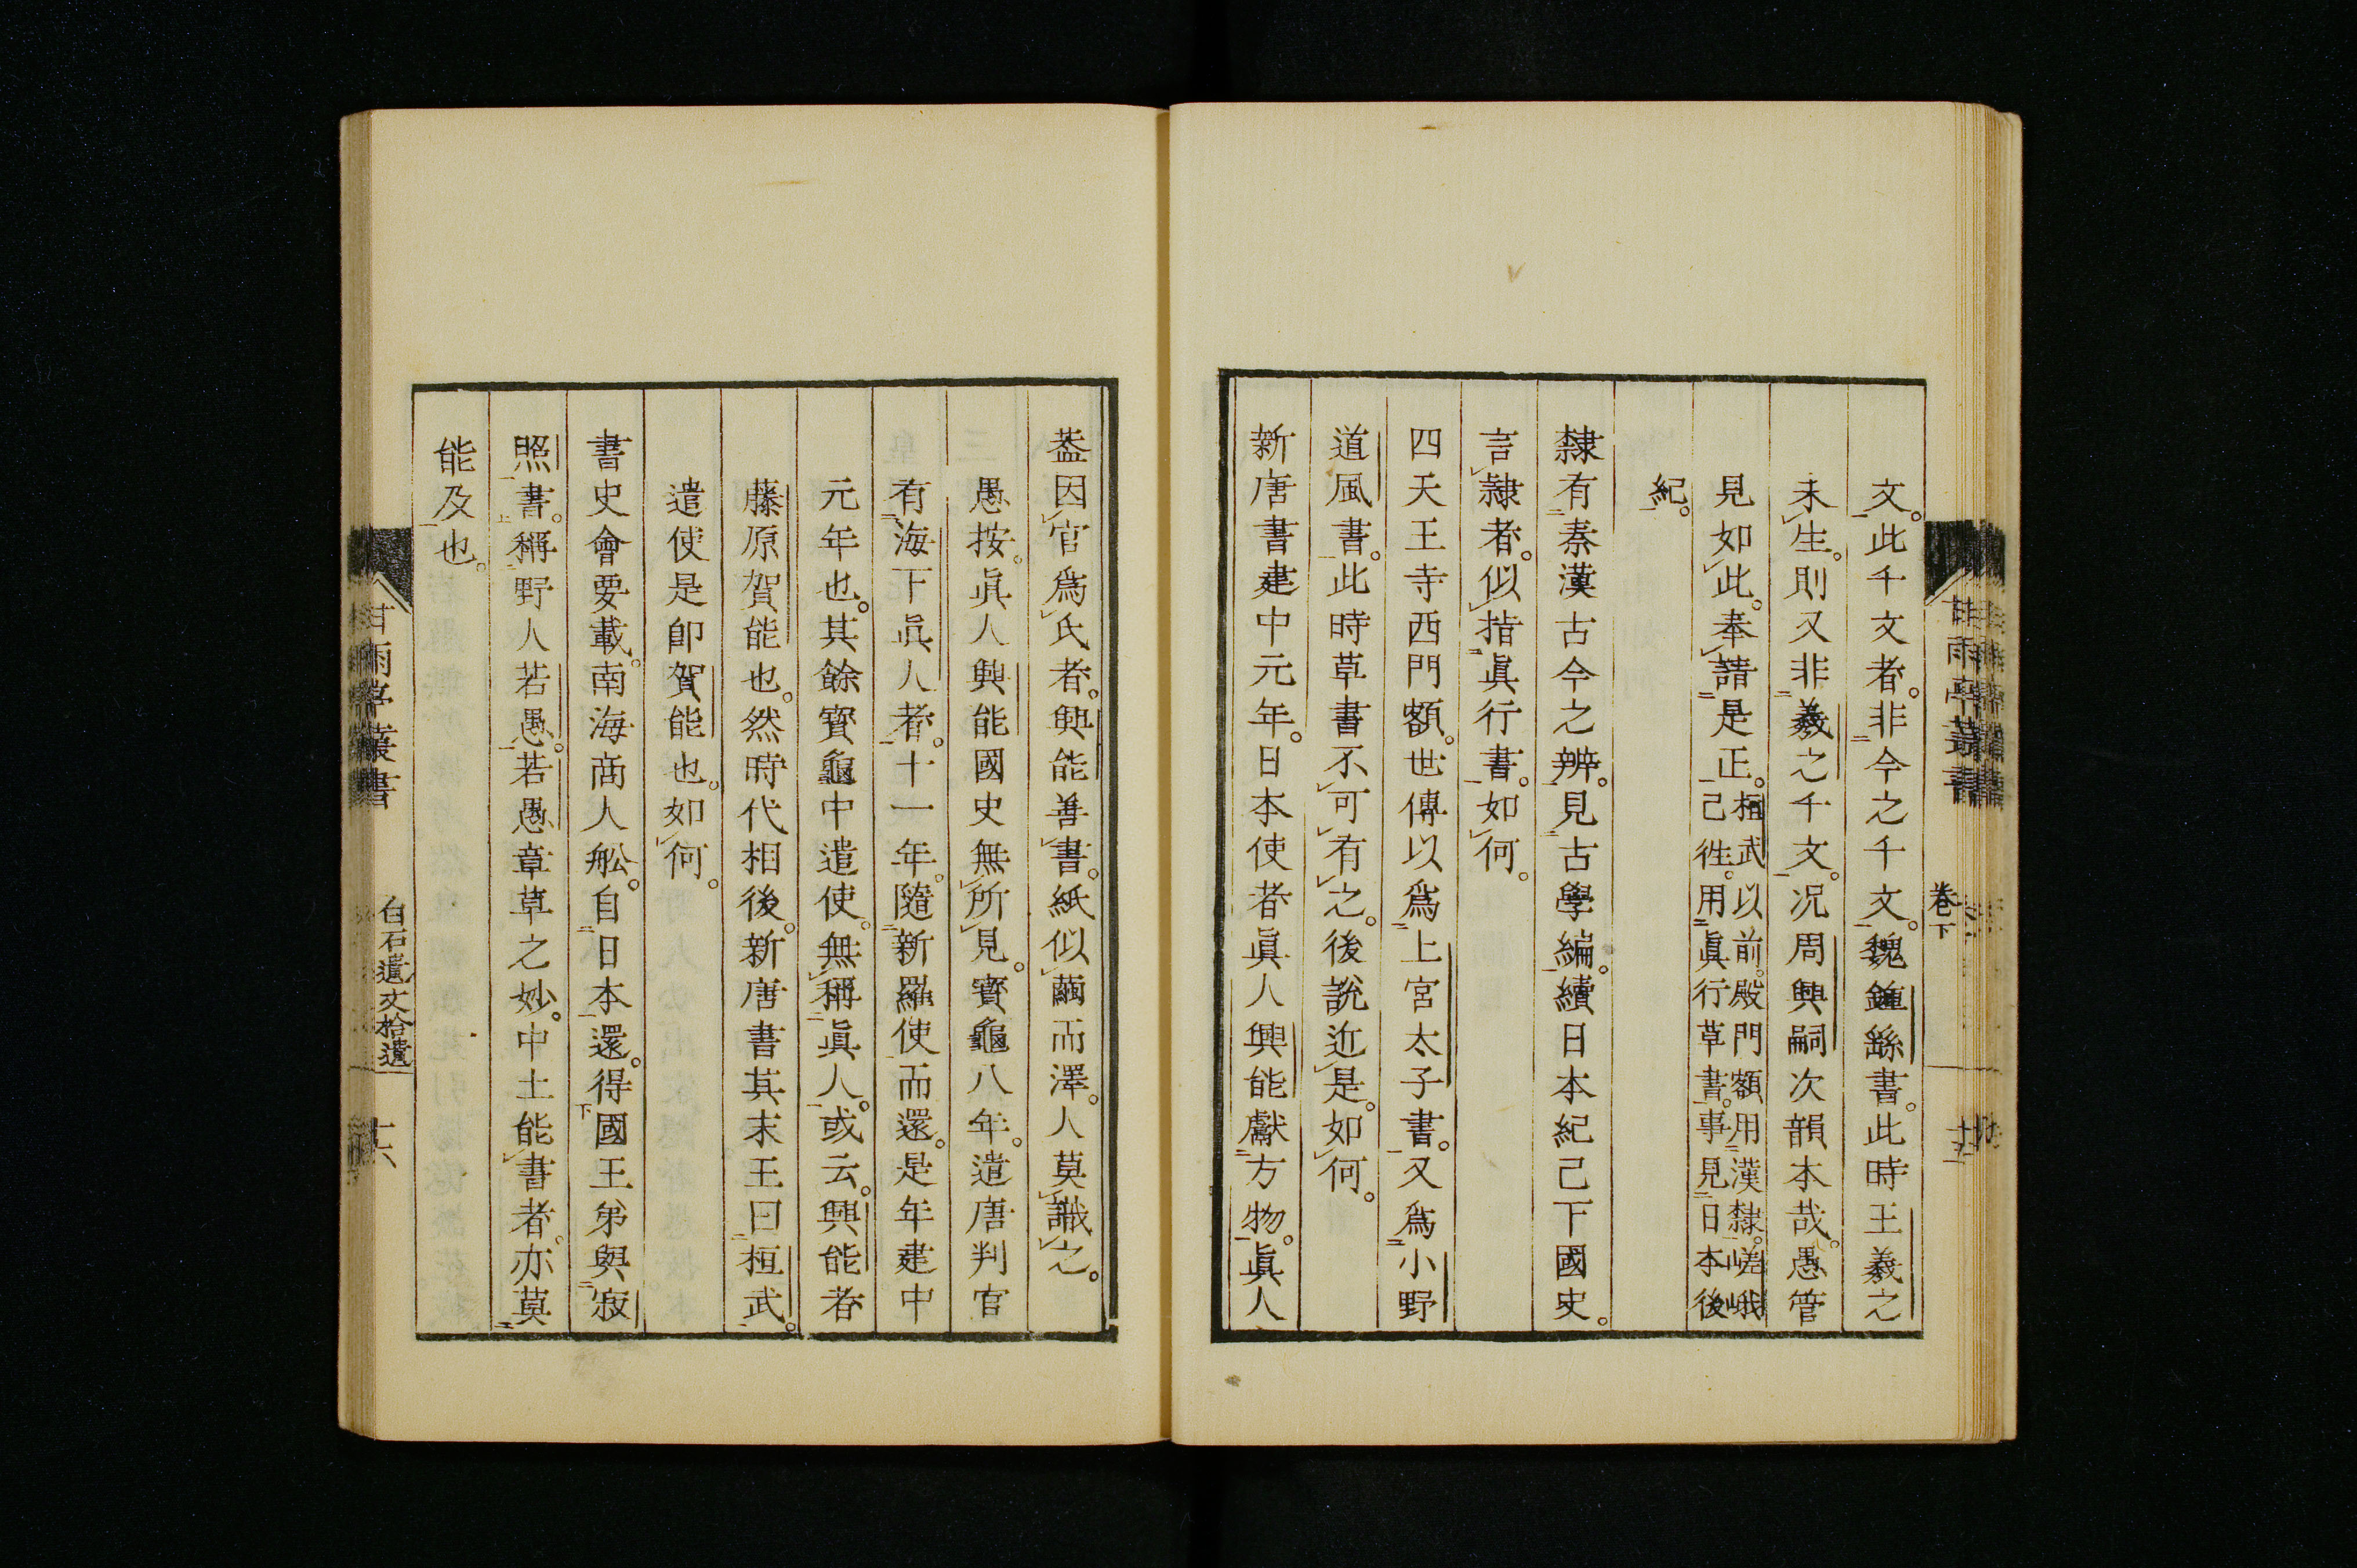 文。此千文者。非今之千文。魏鍾繇書。此時王羲之
未生。則又非羲之千文。況周興嗣次韻本哉。愚管
見如此。奉請是正。桓武以前。殿門額用漢隸。嵯峨
己徃。用眞行草書。事見日本後
紀。
隸有秦漢古今之辨。見古學編。續日本紀己下國史。
言隸者。似指眞行書。如何。
四天王寺西門額。世傳以爲上宮太子書。又爲小野
道風書。此時草書不可有之。後說近是。如何。
新唐書建中元年。日本使者眞人興能獻方物。眞人
甘雨亭叢書
卷下
十五
蓋因官爲氏者。興能善書。紙似繭而澤。人莫識之。
愚按。眞人興能國史無所見。寶龜八年。遣唐判官
有海下眞人者。十一年。隨新羅使而還。是年建中
元年也。其餘寶龜中遣使。無稱眞人。或云。興能者
藤原賀能也。然時代相後。新唐書其末王曰桓武。
遣使是卽賀能也。如何。
書史會要載。南海商人舩。自日本還。得國王弟與寂
照書。稱野人若愚。若愚章草之妙。中土能書者。亦莫
能及也。
甘雨亭叢書
白石遺文拾遺
十六